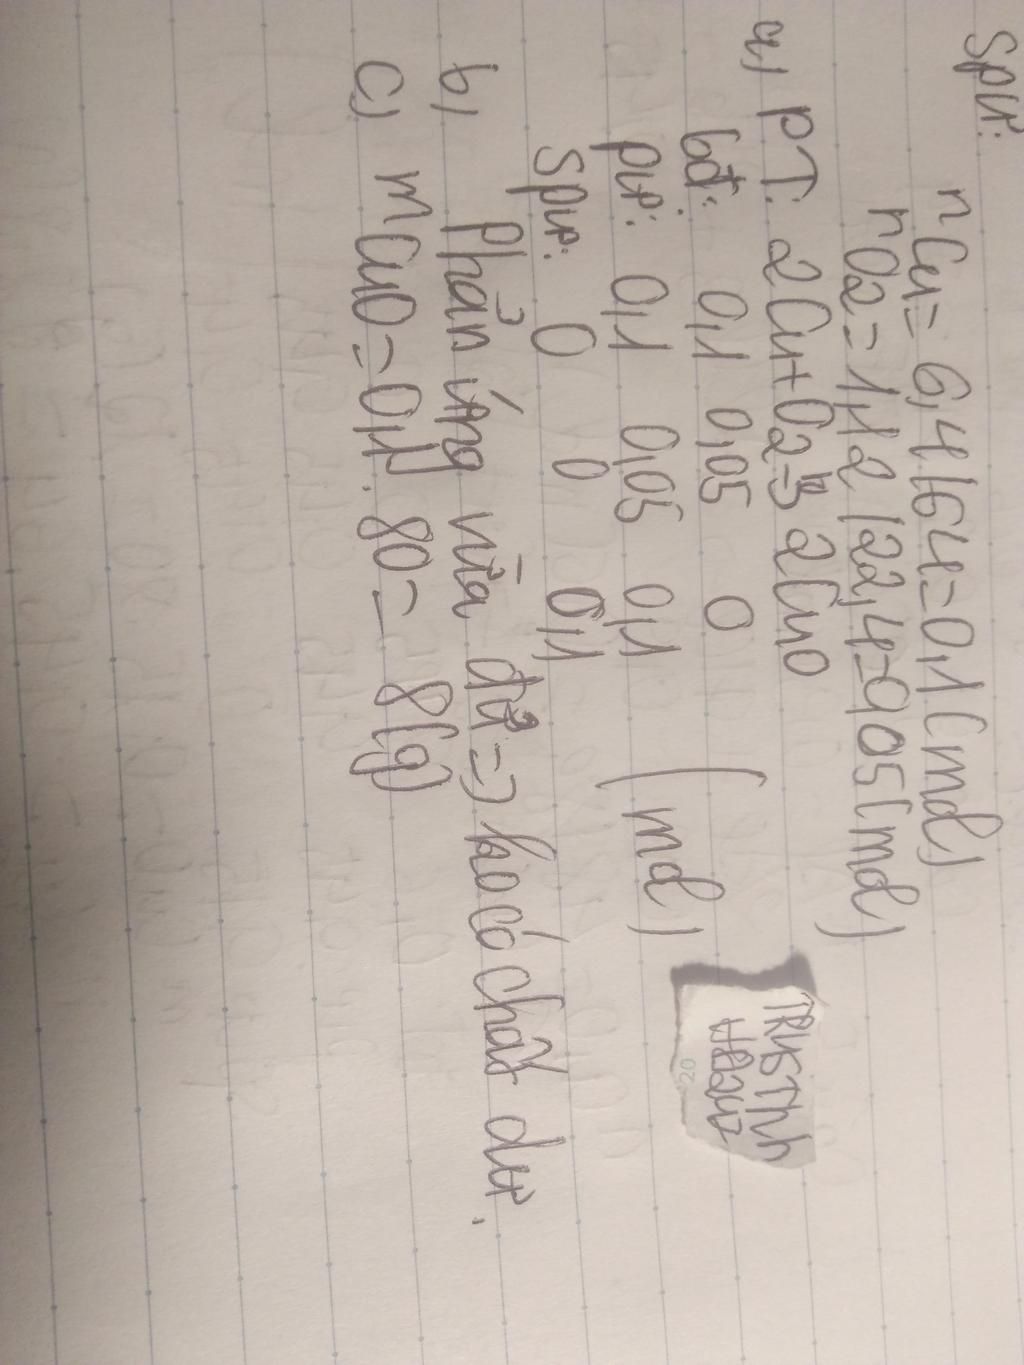 Spư:
nCu = 6,4/64 = 0,1(mol)
nO2 = 1,12/22,4 = 0,05(mol)
a) PT: 2Cu + O2 → 2CuO
bđ: 0,1 0,05 0
pư: 0,1 0,05 0,1 (mol)
Spư: 0 0 0,1
b) Phản ứng vừa đủ => ko có chất dư.
c) mCuO = 0,1 . 80 = 8(g)
20